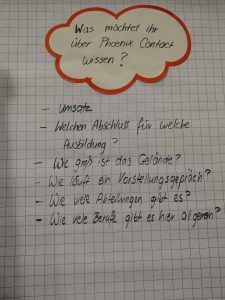 Was möchtet ihr
über Phoenix Contact
wissen?
- Umsatz
- Welchen Abschluss für welche
Ausbildung?
- Wie groß ist das Gelände?
- Wie läuft ein Vorstellungsgespräch?
- Wie viele Abteilungen gibt es?
- Wie viele Berufe gibt es hier allgemein?